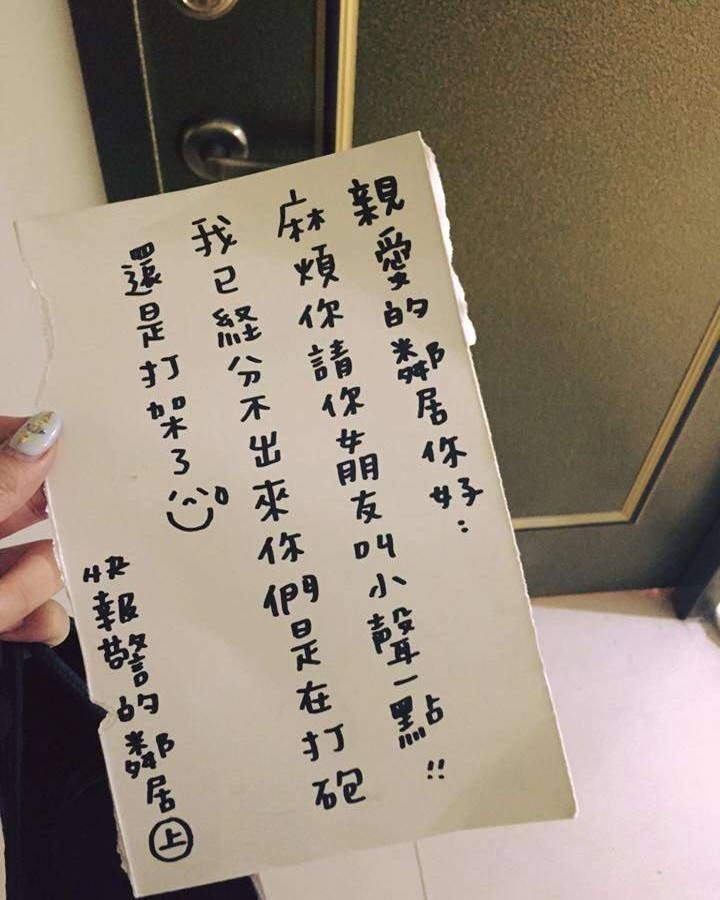 親愛的鄰居你好：
麻煩你請你女朋友叫小聲一點!!
我已經分不出來你們是在打砲
還是打架了
快報警的鄰居上